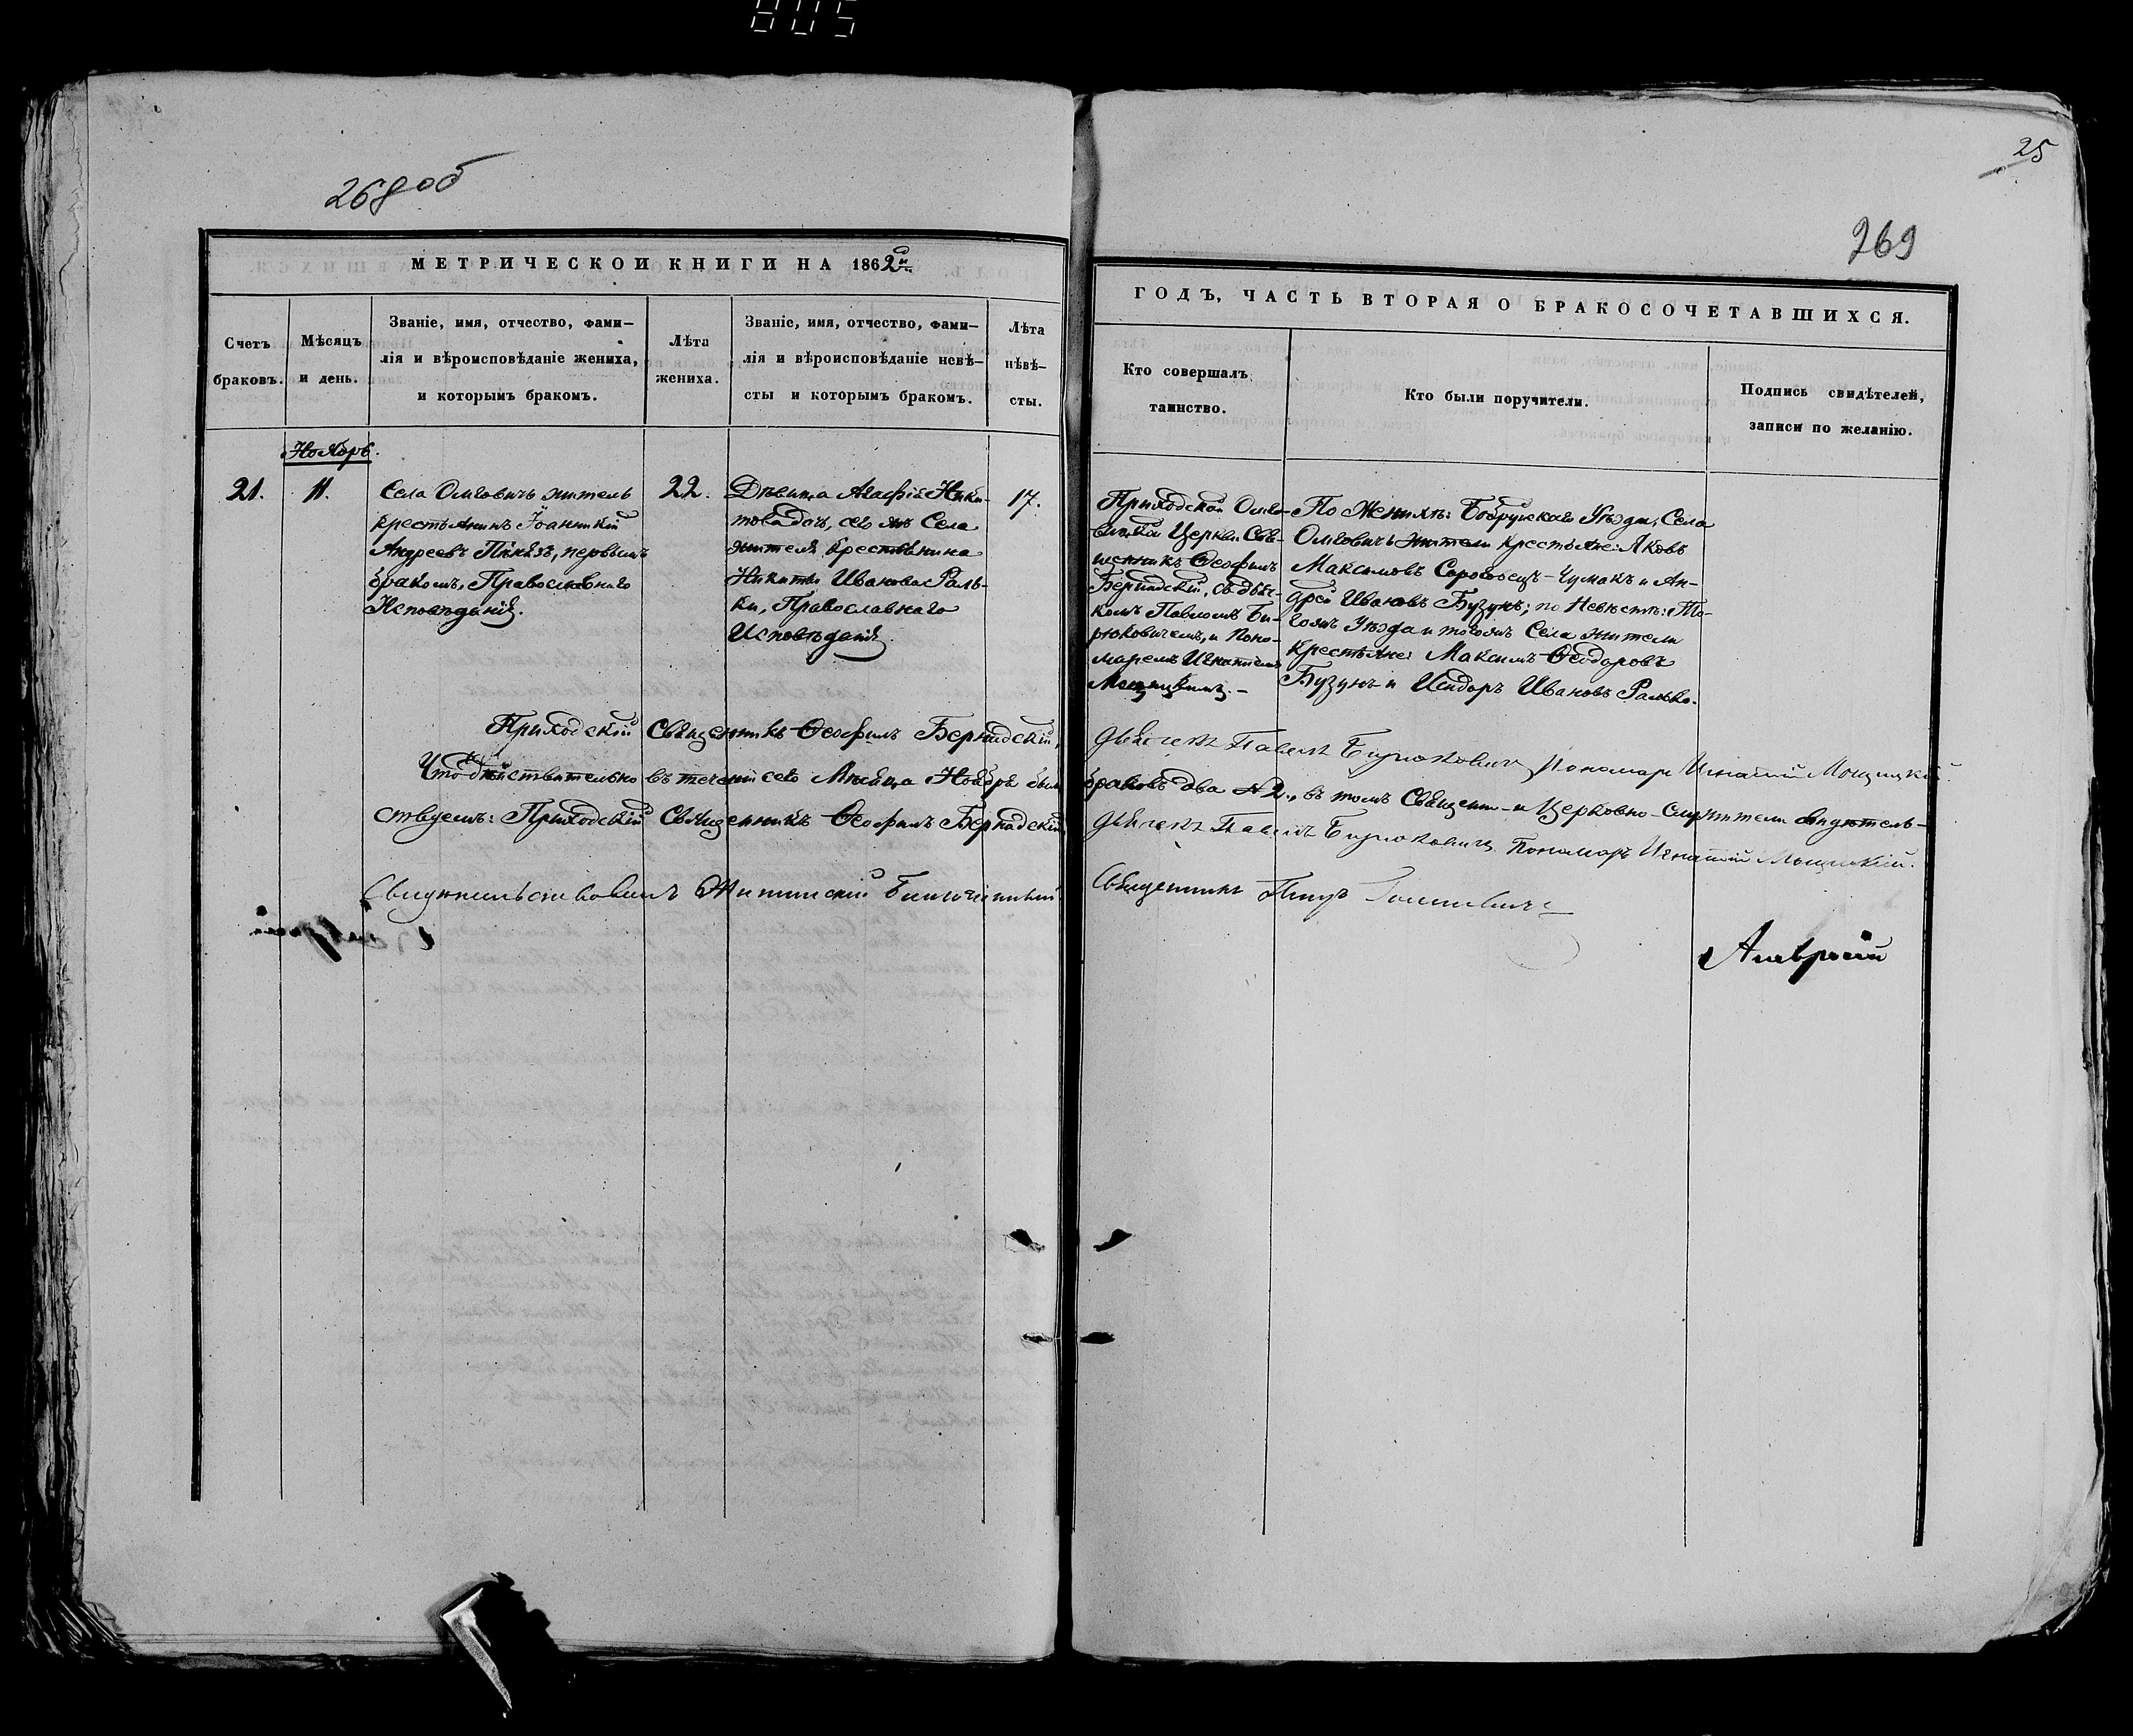 805
25
268 об
269
МЕТРИЧЕСКОЙ КНИГИ НА 1862й
ГОДЪ, ЧАСТЬ ВТОРАЯ О БРАКОСОЧЕТАВШИХСЯ.
Счетъ
браковъ.
Мѣсяцъ
и день.
Званіе, имя, отчество, фами-
лія и вѣроисповѣданіе жениха,
и которымъ бракомъ.
Лѣта
жениха.
Званіе, имя, отчество, фами-
лія и вѣроисповѣданіе невѣ-
сты и которымъ бракомъ.
Лѣта
нѣвѣ-
сты.
Кто совершалъ
таинство.
Кто были поручители.
Подпись свидѣтелей,
записи по желанію.
Ноябрь.
21.
11.
Села Омговичъ житель
крестьянинъ Іоанникій
Андреевъ первымъ
бракомъ, Православнаго
Исповѣданія.
22.
Дѣвица Агафія Ники-
това дочь, сего жъ Села
жителя, крестьянина
Никиты Иванова Раль-
ки, Православнаго
Исповѣданія.
17.
Приходской Омго-
вицкой Церкви Свя-
щенникъ Ѳеофилъ
Бернадскій, съ дьяч-
комъ Павломъ Би-
рюковичемъ, и Поно-
маремъ Игнатіемъ
Мощицкимъ.-
По Женихѣ: Бобруйскаго Уѣзда, Села
Омговичъ жители крестьяне: Яковъ
Максимовъ - Чумакъ и Ан-
дрей Ивановъ Бузунъ; по Невѣстѣ: То-
гожъ Уѣзда и тогожъ Села жители
крестьяне: Максимъ Ѳеодоровъ
Бузунъ и Исидоръ Ивановъ Ралько.
Приходскій Священникъ Ѳеофилъ Бернадскій,
дьячекъ Павелъ Бирюковичъ Пономарь Игнатій Мощицкій.
Что дѣйствительно въ теченіи сего Мѣсяца Ноября было
браковъ два № 2., въ томъ Священно- и Церковно-Служители свидѣтель-
ствуемъ: Приходскій Священникъ Ѳеофилъ Бернадскій
дьячекъ Павелъ Бирюковичъ Пономарь Игнатій Мощицкій.
Свидѣтельствовалъ Благочинный
Священникъ Петръ